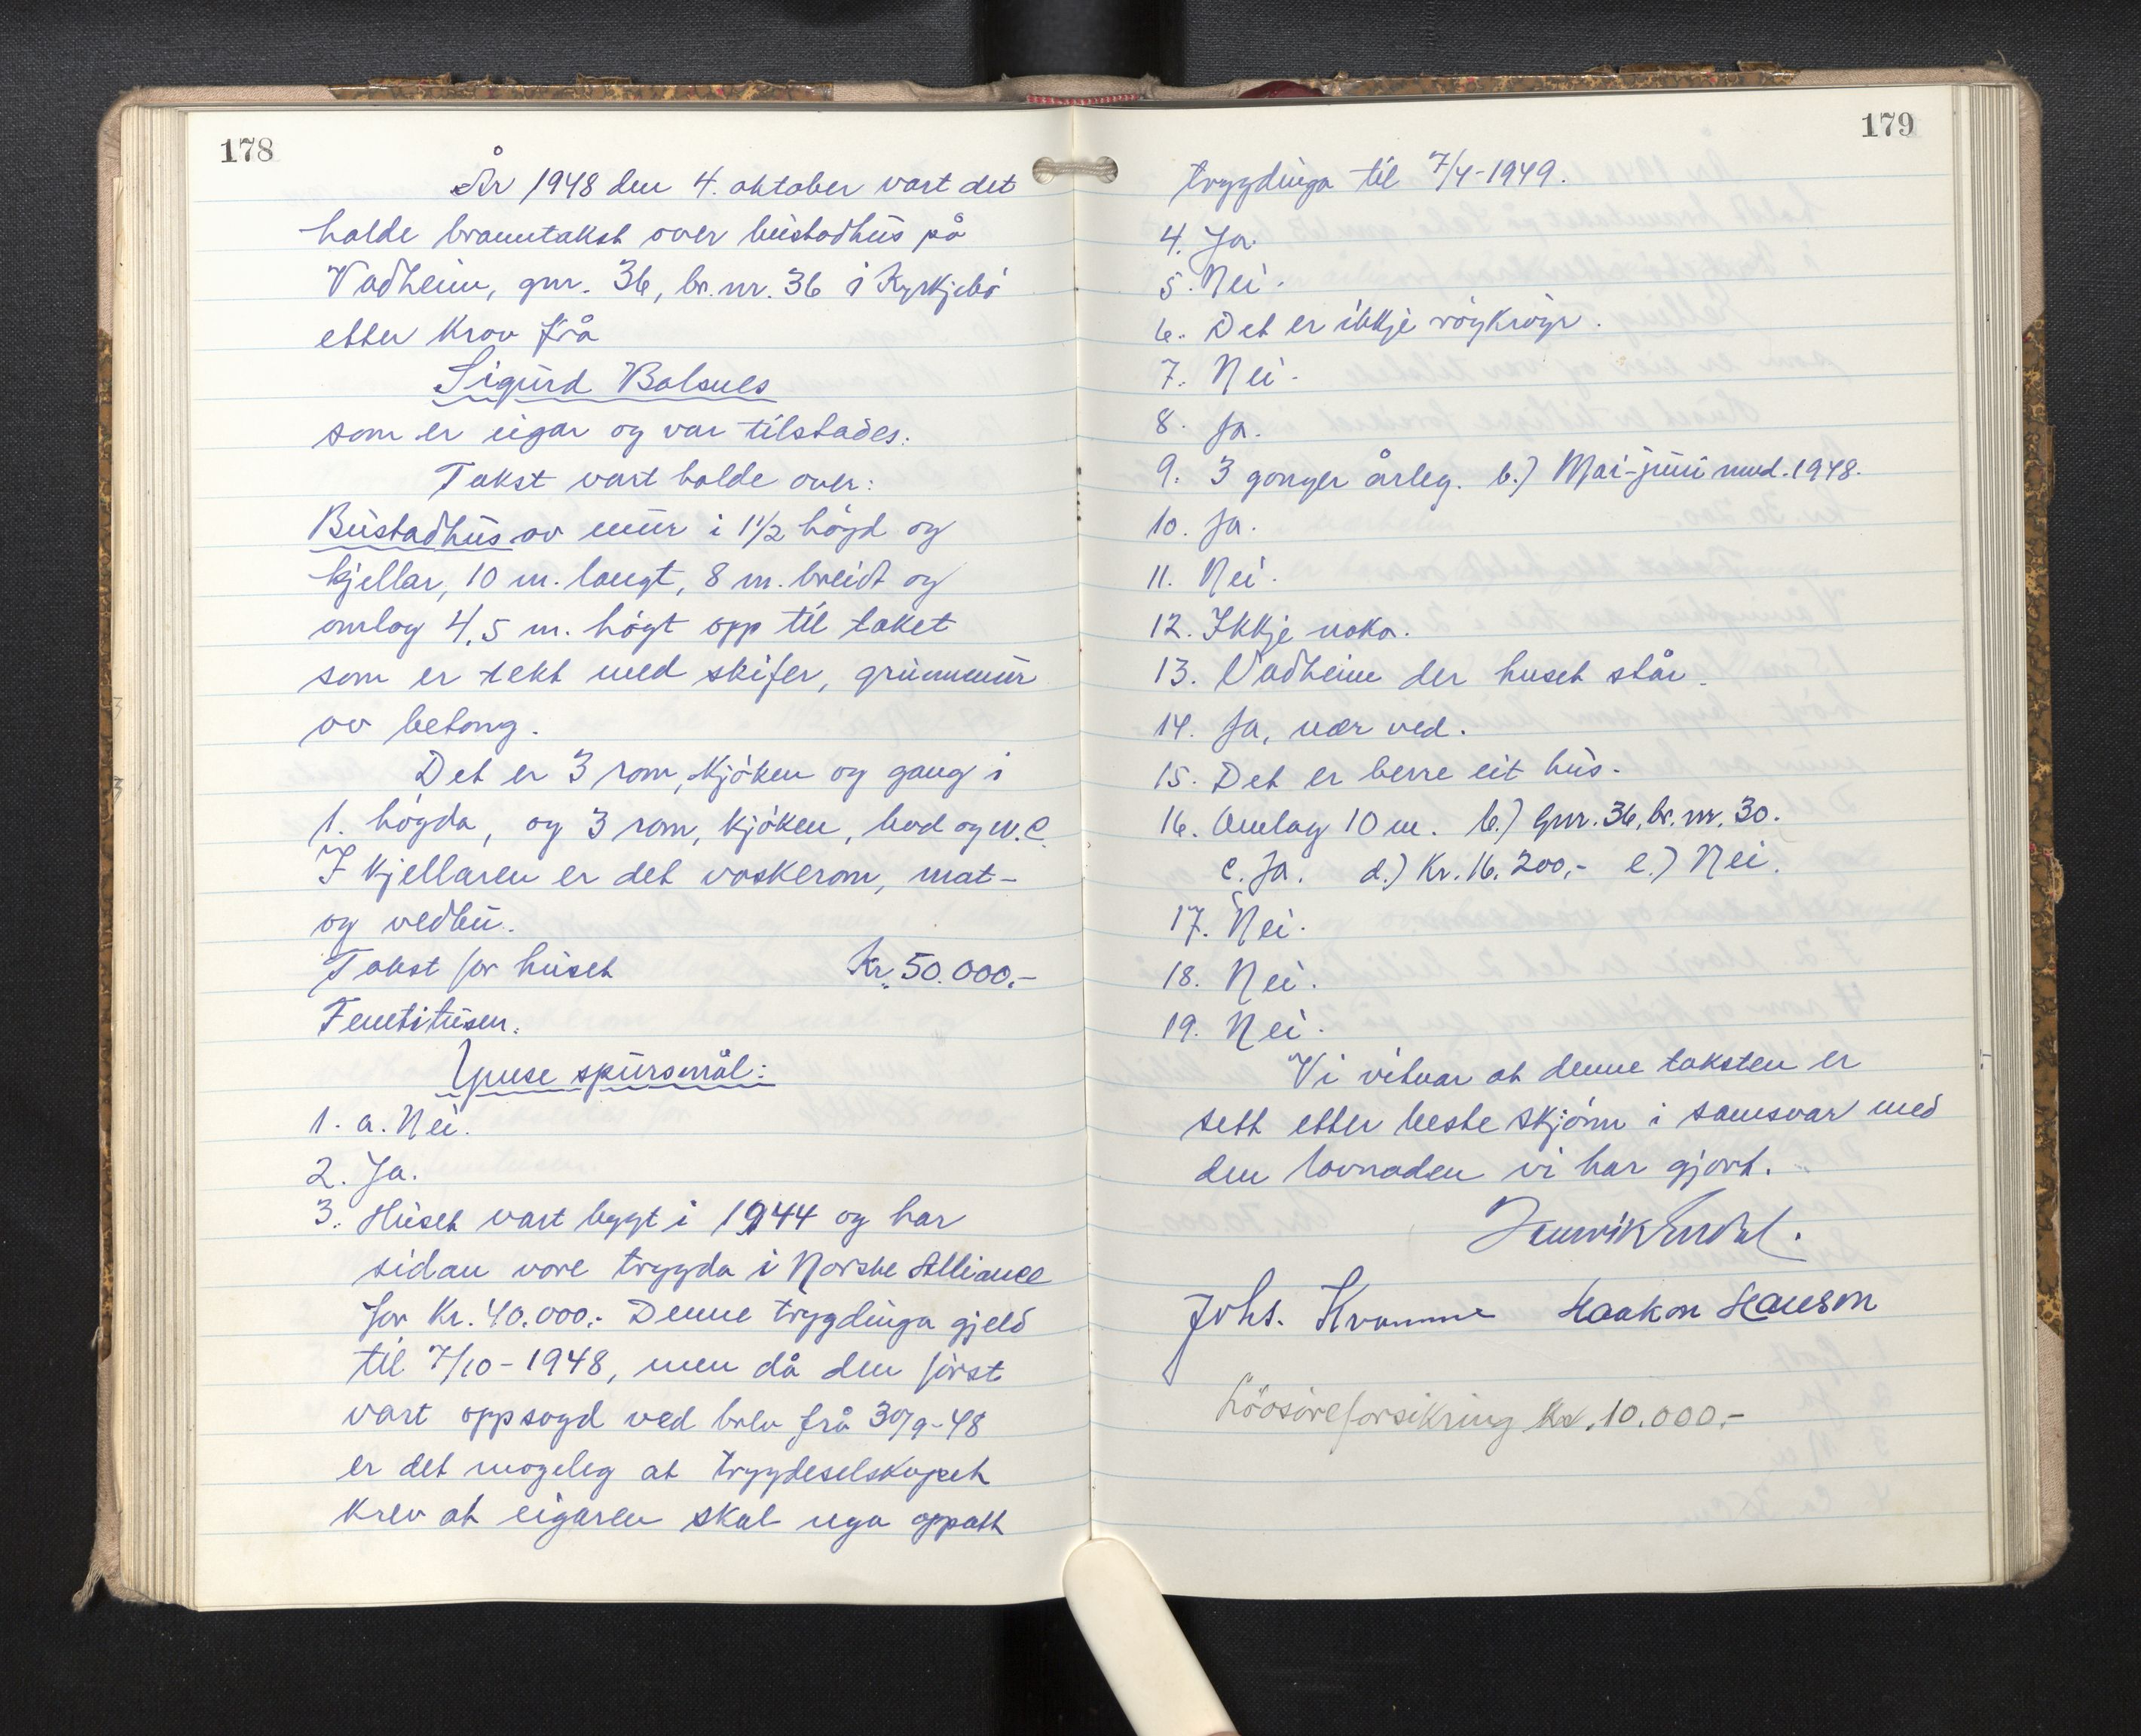 178
År 1948 den 4. oktober vart det
halde branntakst over bustadhus på
Vadheim, gnr. 36, br. nr. 36 i Kyrkjebö
etter krav frå
Sigurd Balsnes
som er eigar og var tilstades.
Takst vart halde over:
Bustadhus av mur i 1 1/2 högd og
kjellar, 10 m. langt, 8 m. breidt og
omlag 4,5 m. högt opp til taket
som er tekt med skifer, grunnmur
av betong.
Det er 3 rom, kjöken og gang i
1. högda, og 3 rom, kjöken, bod og W.C.
I kjellaren er det vaskerom, mat-
og vedbu.
Takst for huset Kr. 50.000.-
Femtitusen.
Ymse spursmål:
1. a. Nei.
2. Ja.
3. Huset vart bygt i 1944 og har
sidan vore trygda i Norske Alliance
for Kr. 40.000.- Denne trygdinga gjeld
til 7/10-1948, men då den först
vart oppsagd ved brev frå 30/9-48
er det mogeleg at trygdeselskapet
krev at eigaren skal uga oppatt
179
trygdinga til 7/4-1949.
4. Ja.
5. Nei.
6. Det er ikkje röykröyr.
7. Nei.
8. Ja.
9. 3 gonger årleg. b.) Mai-juni mnd. 1948.
10. Ja.
11. Nei.
12. Ikkje noko.
13. Vadheim der huset står.
14. Ja, nær ved.
15. Det er berre eit hus.
16. Omlag 10 m. b.) Gnr. 36, br. nr. 30.
c. Ja. d.) Kr. 16.200,- e.) Nei.
17. Nei.
18. Nei.
19. Nei.
Vi vitnar at denne taksten er
sett etter beste skjönn i samsvar med
den lovnaden vi har gjort.
Henrik
Johs. Kvamme Haakon Hanson
Lösöreforsikring Kr. 10.000.-